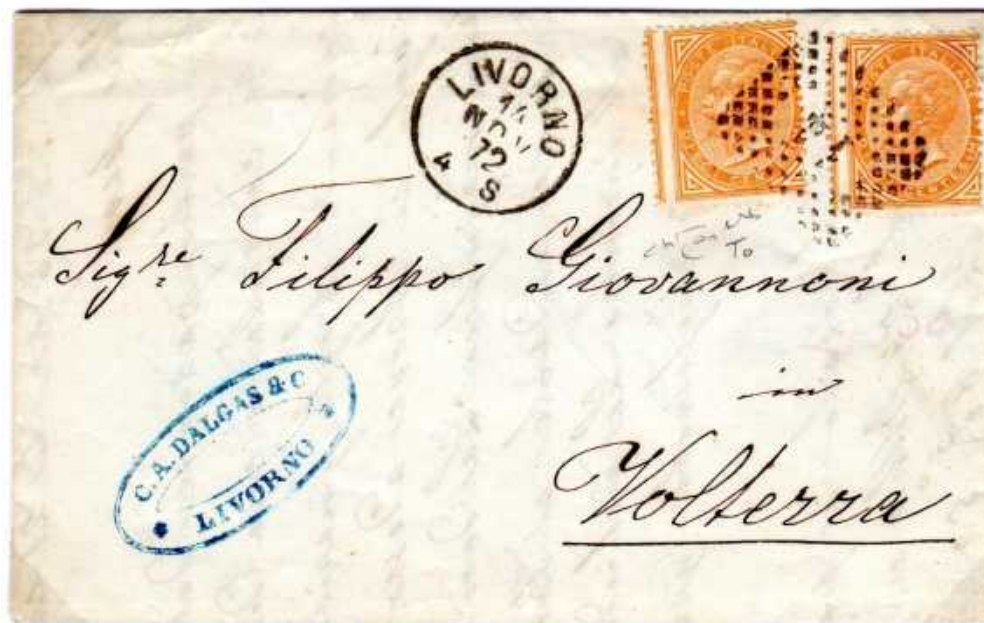 LIVORNO
14
NOV
72
4 S
Sig.re Filippo Giovannoni
in
Volterra
C. A. DALGAS & C.
LIVORNO